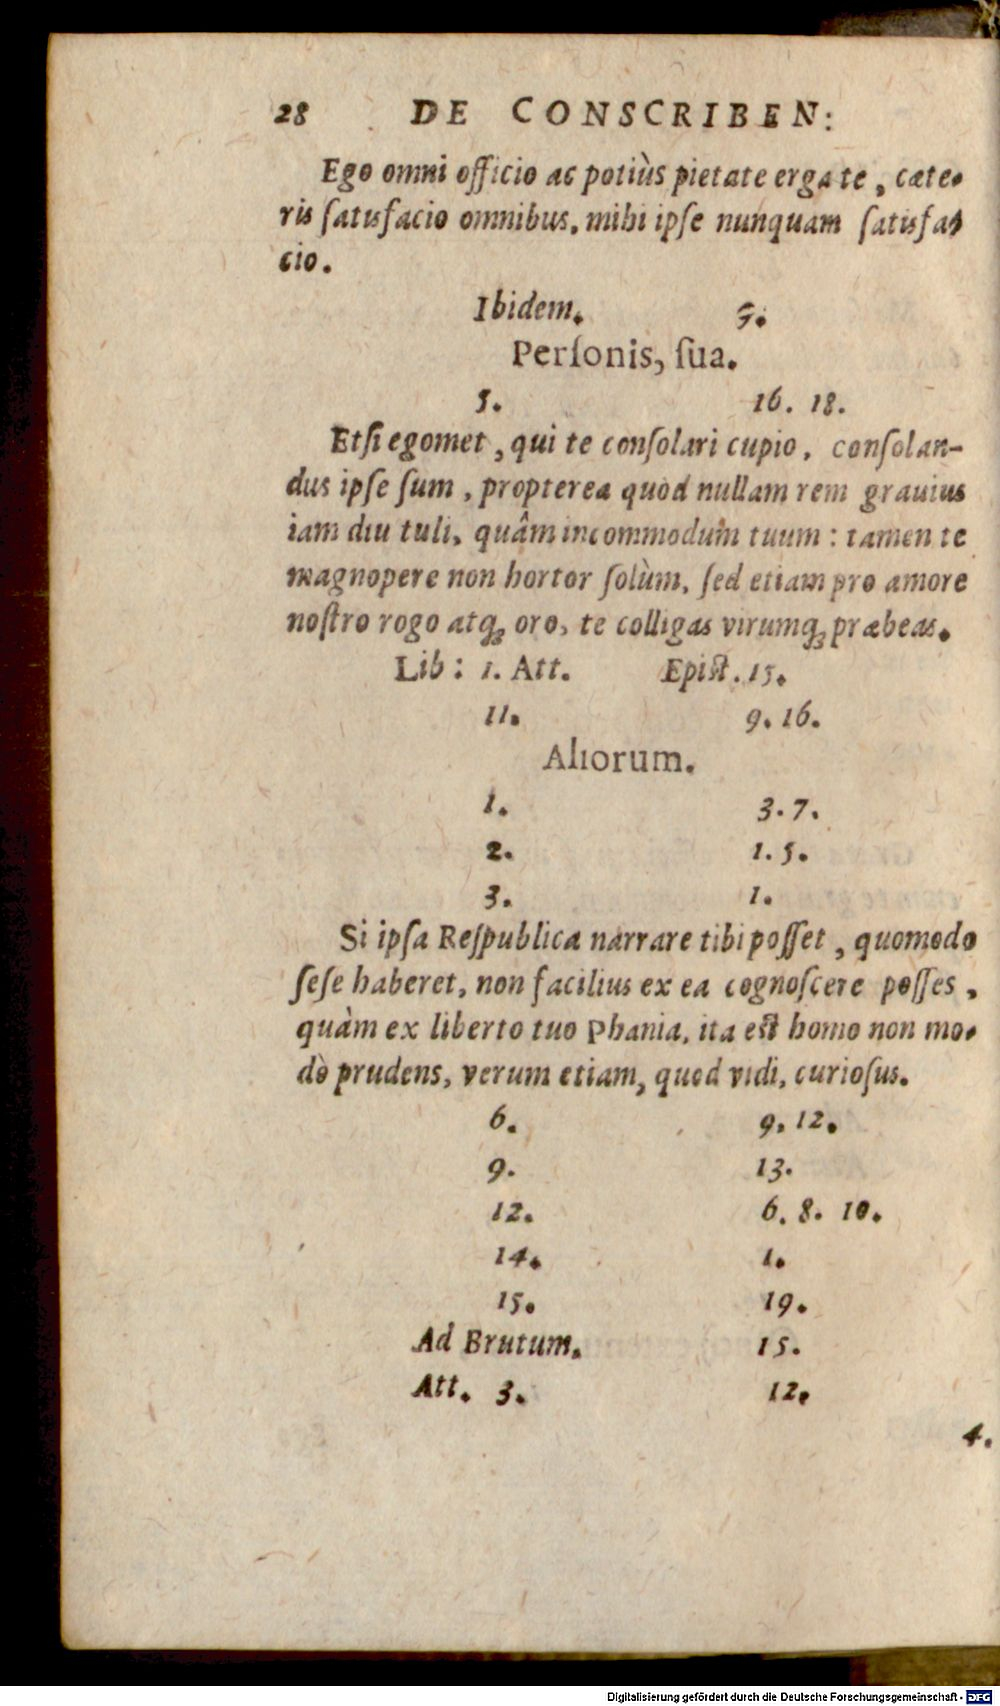 28 DE CONSCRIBEN:
Ego omni officio ac potiùs pietate erga te, cæte-
ris ſatisfacio omnibus. mihi ipſe nunquam ſatisfa-
cio.
Ibidem. 5.
Perſonis, ſua.
5. 16. 18.
Etſi egomet, qui te conſolari cupio, conſolan-
dus ipſe ſum, propterea quòd nullam rem grauius
iam diu tuli, quâm incommodum tuum: tamen te
magnopere non hortor ſolùm, ſed etiam pro amore
noſtro rogo atq; oro, te colligas virumq; præbeas.
Lib: 1. Att. Epiſt. 15.
11. 9. 16.
Aliorum.
1. 3. 7.
2. 1. 5.
3. 1.
Si ipſa Reſpublica narrare tibi poſſet, quomodo
ſeſe haberet, non facilius ex ea cognoſcere poſſes,
quàm ex liberto tuo Phania, ita eſt homo non mo-
dò prudens, verum etiam, quod vidi, curioſus.
6. 9. 12.
9. 13.
12. 6. 8. 10.
14. 1.
15. 19.
Ad Brutum. 15.
Att. 3. 12.
4.
Digitalisierung gefördert durch die Deutsche Forschungsgemeinschaft - DFG